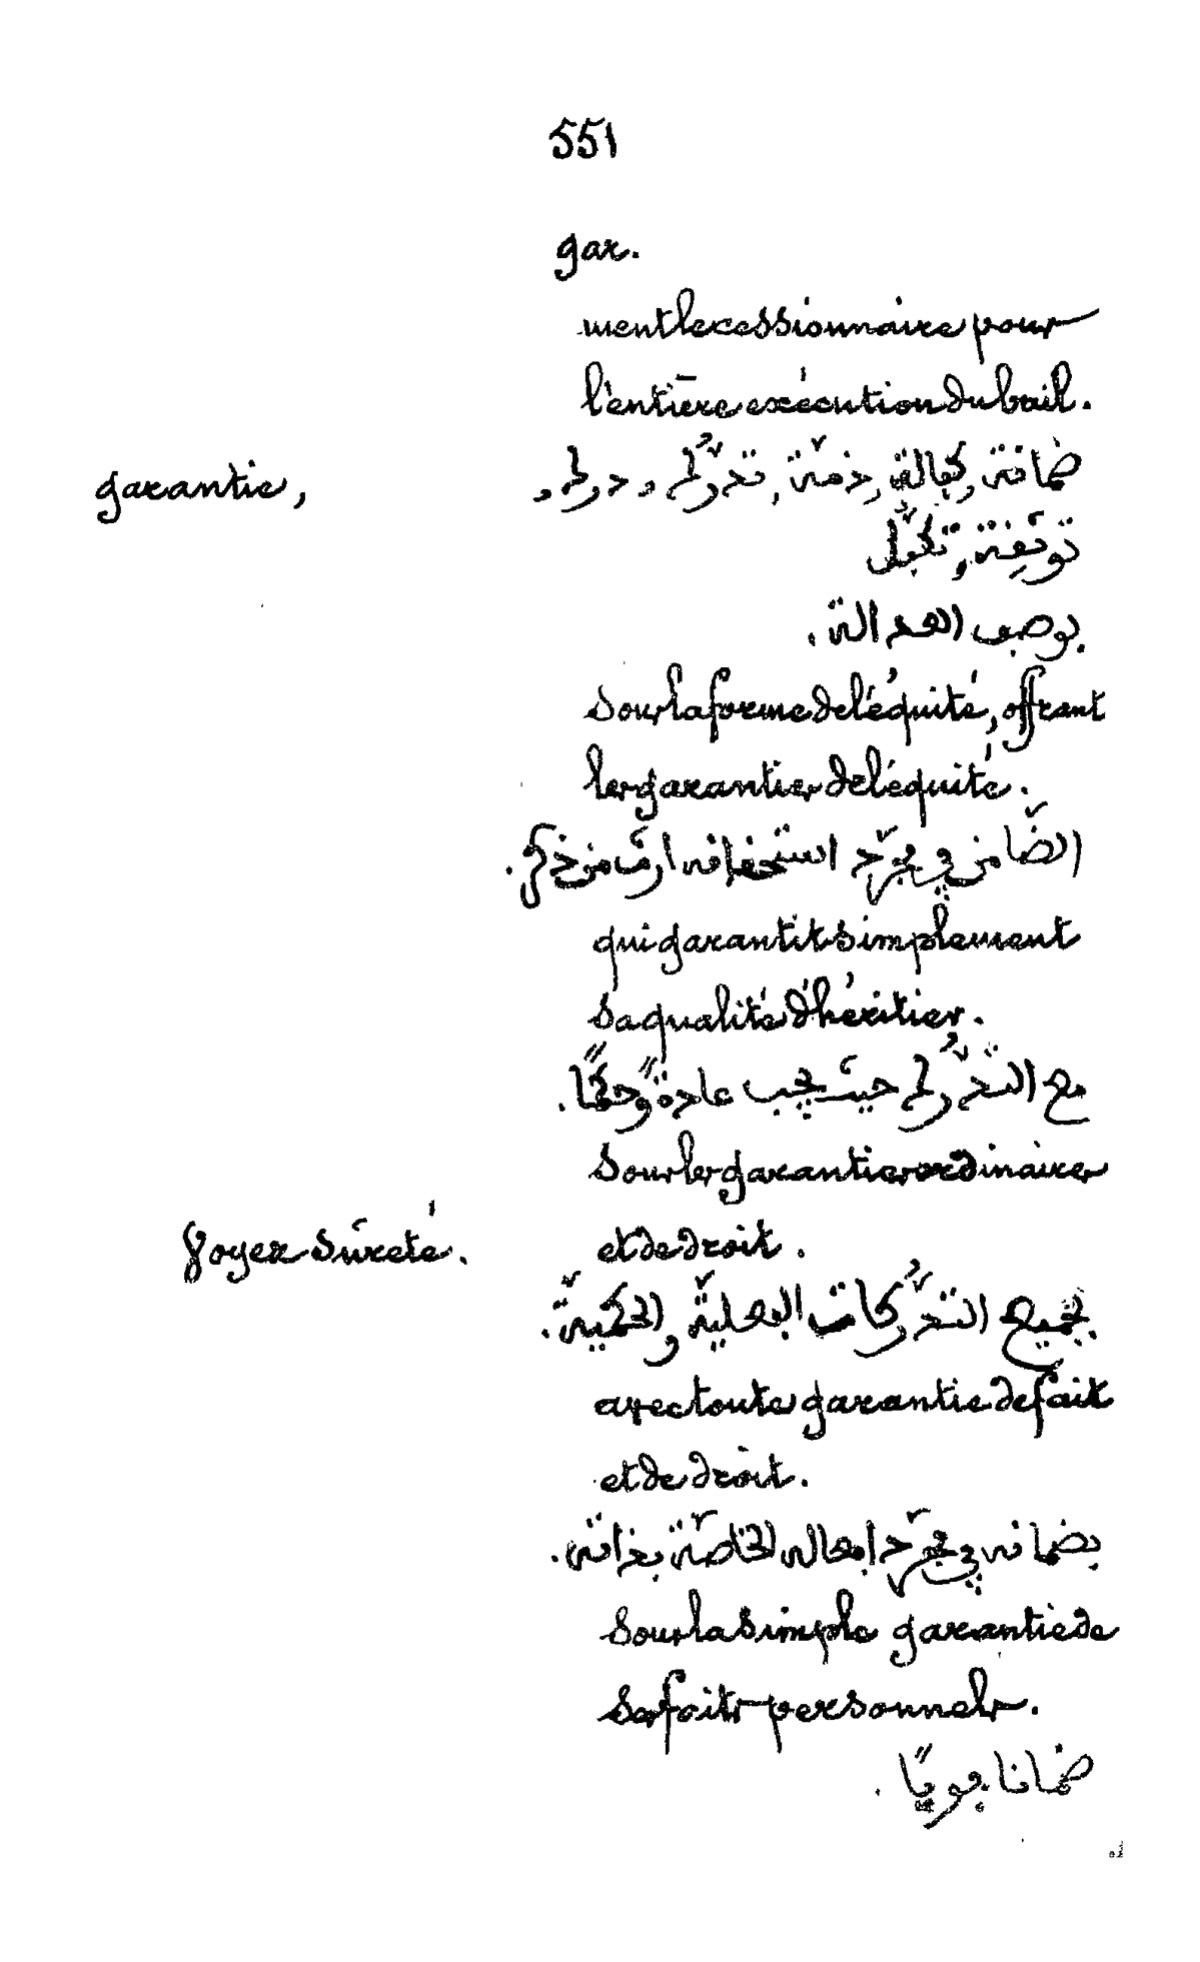 551
gar.
ment le cessionnaire pour
l'entière exécution du bail.
garantie,
ضمانة, كفالة, ذمّة, تدرُّك, درك,
توثِقة, تكفُّل
بوصف العدالة.
sous la forme de l'équité, offrant
les garanties de l'équité.
الضّامن في مجرّد استحقاقه ارث من ذكر.
qui garantit simplement
sa qualité d'héritier.
مع التّدرُّك حيث يجب عادةً وحكمًا.
sous les garanties ordinaires
Voyez sûreté.
et de droit.
بجميع التدرُّكات الفعليّة والحكميّة.
avec toute garantie de fait
et de droit.
بضمانه في مجرّد افعاله الخاصّة بذاته.
sous la simple garantie de
ses faits personnels.
ضمانا قويًا.